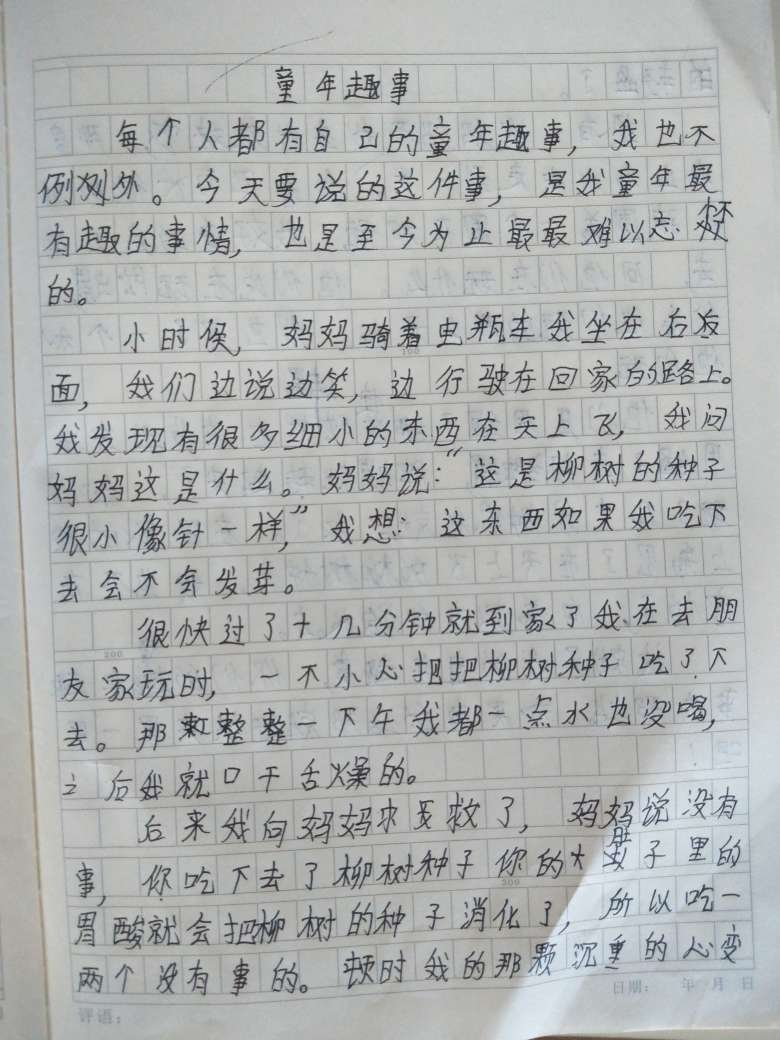 童年趣事
每个人都有自己的童年趣事，我也不
例外。今天要说的这件事，是我童年最
有趣的事情，也是至今为止最最难以忘怀
的。
小时侯，妈妈骑着电瓶车我坐在右后
面，我们边说边笑，边行驶在回家的路上。
我发现有很多细小的东西在天上飞，我问
妈妈这是什么。妈妈说：“这是柳树的种子
很小像针一样，”我想：这东西如果我吃下
去会不会发芽。
很快过了十几分钟就到家了我在去朋
友家玩时，一不小心把把柳树种子吃了下
去。那整整一下午我都一点水也没喝，
之后我就口干舌燥的。
后来我向妈妈求救了，妈妈说没有
事，你吃下去了柳树种子你的大肚子里的
胃酸就会把柳树的种子消化了，所以吃一
两个没有事的。顿时我的那颗沉重的心变
200
300
评语：
日期： 年 月 日